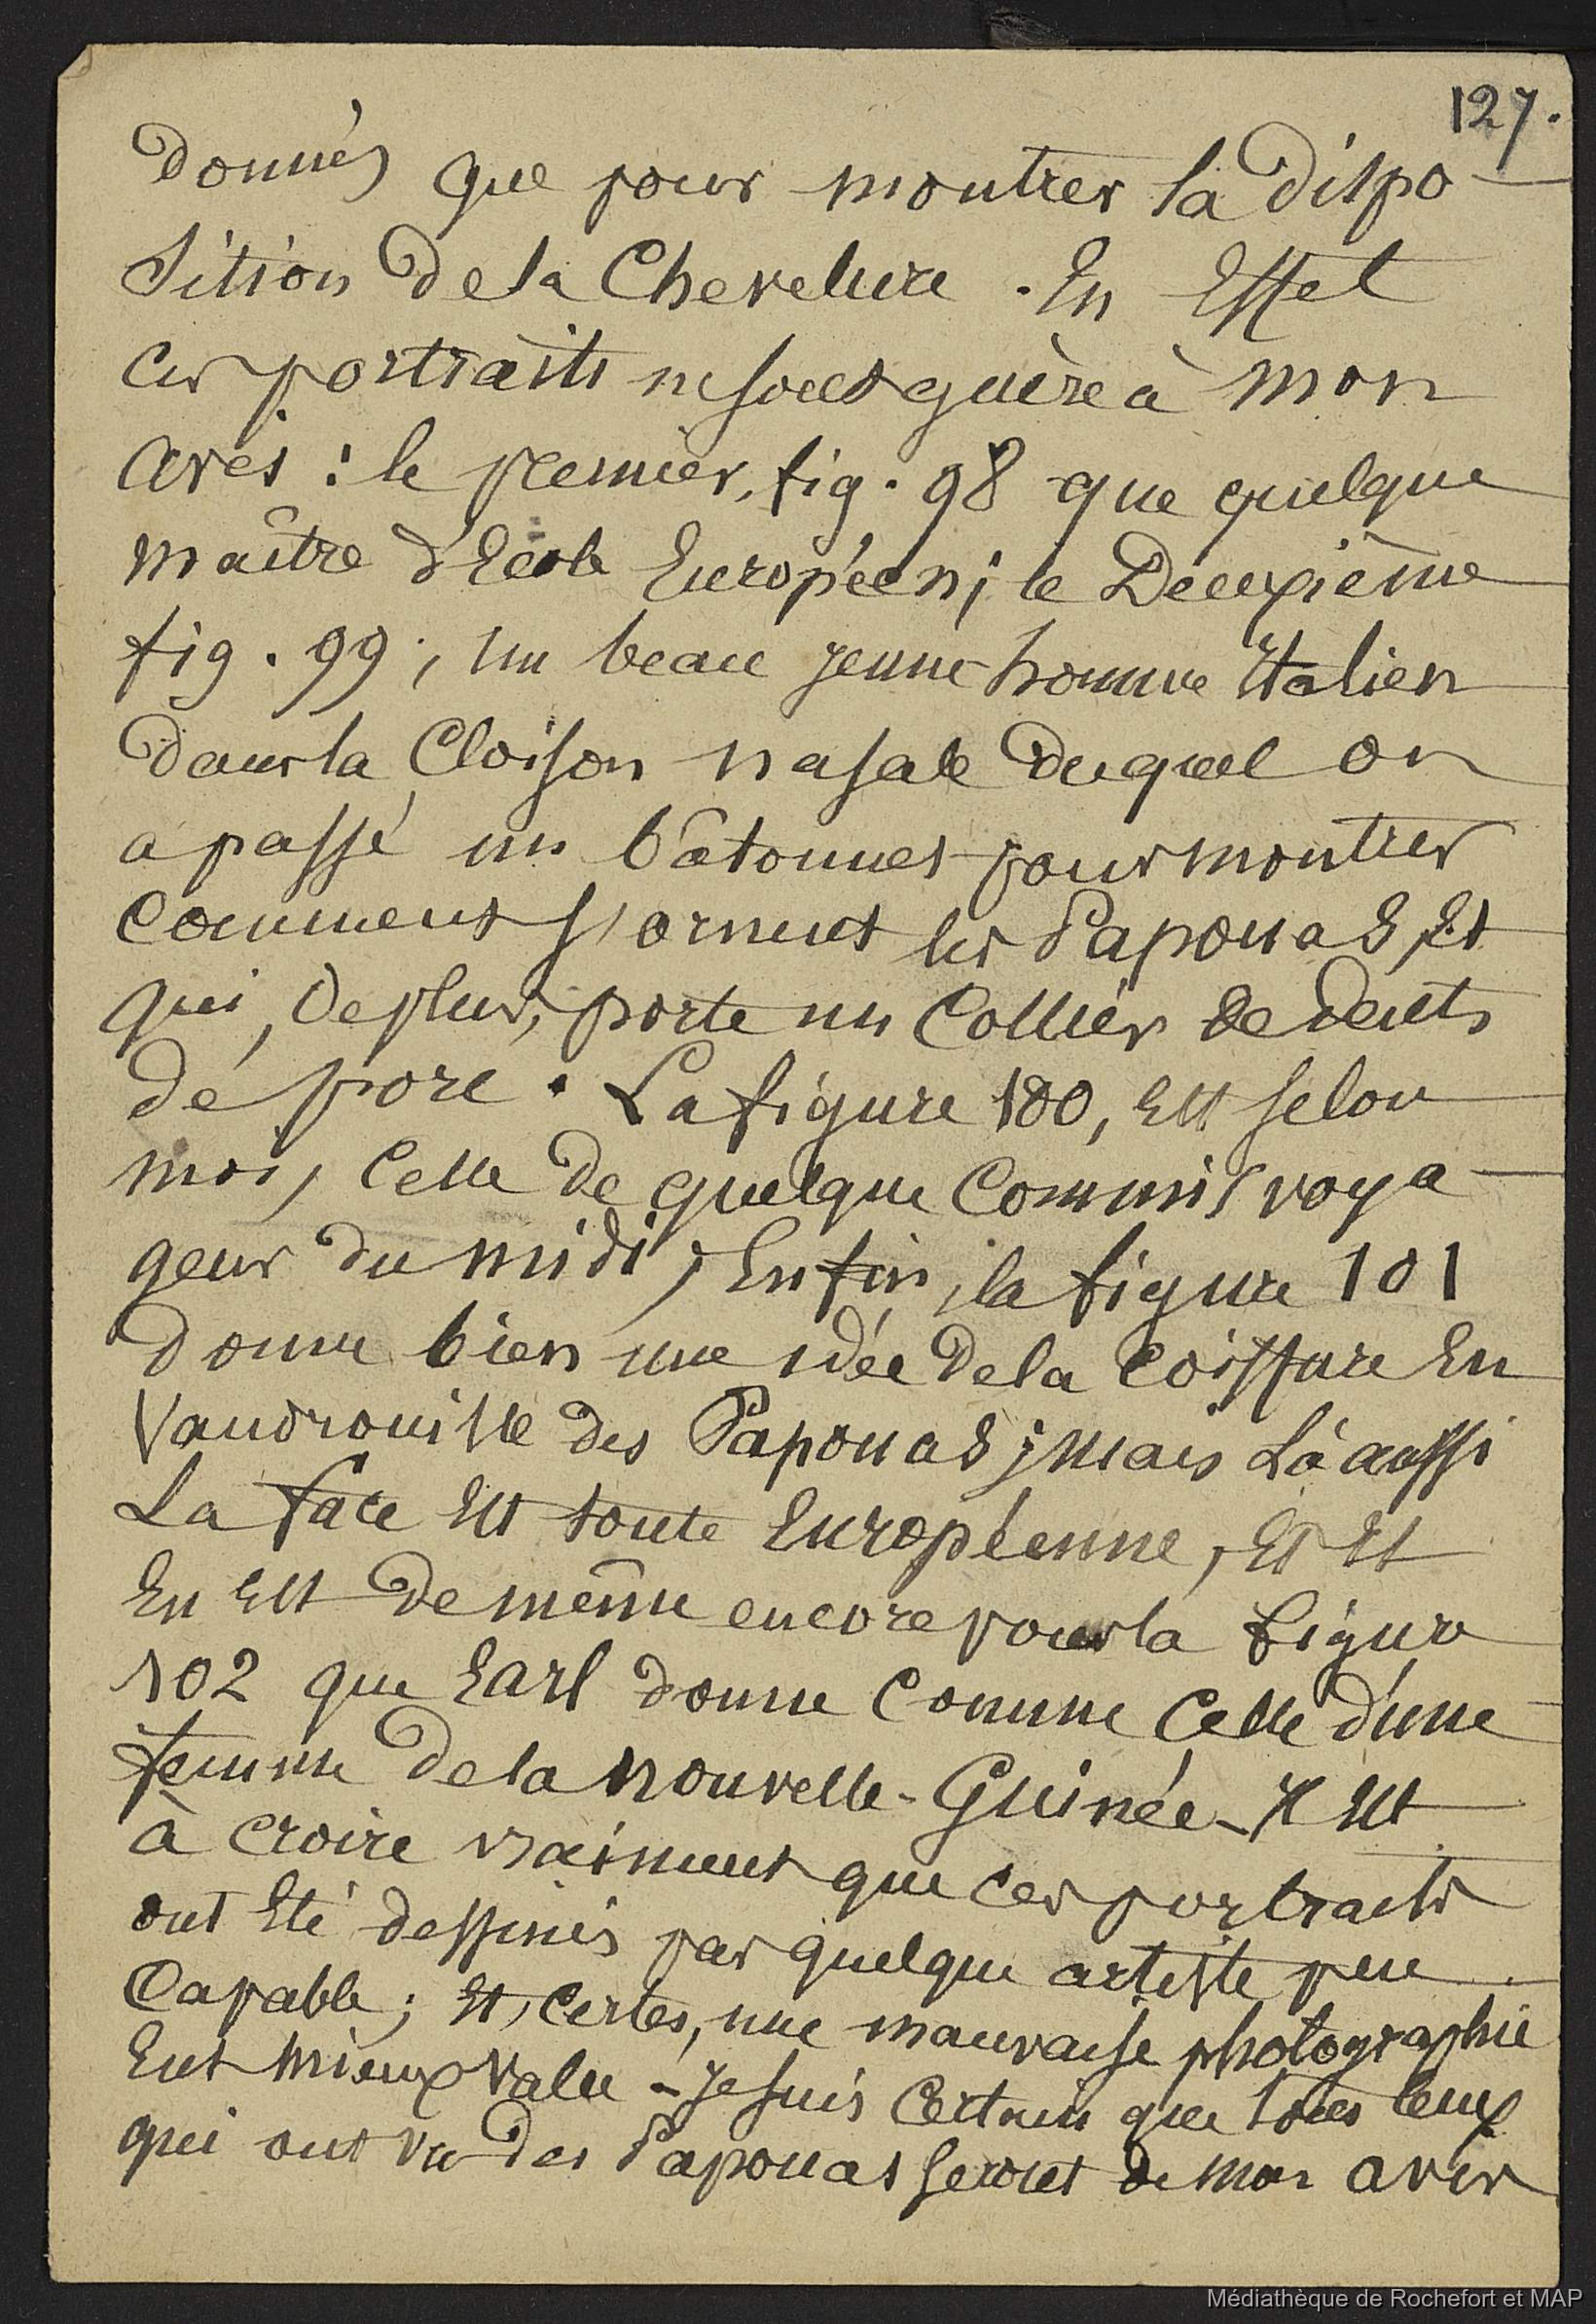 127.
donnés que pour montrer la dispo-
sition de la Chevelure. En Effet
ces portraits ne sont guère à mon
avis : le premier, fig. 98 que quelque
maître d'Ecole Européen ; le Deuxième
fig. 99 ; un beau jeune homme Italien
dans la Cloison nasale duquel on
a passé un bâtonnet pour montrer
Comment s'ornent les Papouas, Et
qui, de plus, porte un Collier de dents
de porc. La figure 100, Est selon
moi, Celle de quelque Commis voya-
geur du midi ; Enfin, la figure 101
donne bien une idée de la Coiffure En
Vaudrouille des Papouas ; mais Là aussi
La face Est toute Européenne, Et Il
En Est de même encore pour la figure
102 que Earl donne Comme Celle d'une
femme de la Nouvelle-Guinée - Il Est
à Croire vraiment que Ces portraits
ont Eté dessinés par quelque artiste peu
Capable ; Et, Certes, une mauvaise photographie
Eut Mieux Valu - Je suis Certain que tous Ceux
qui ont vu des Papouas seront de mon avis
Médiathèque de Rochefort et MAP